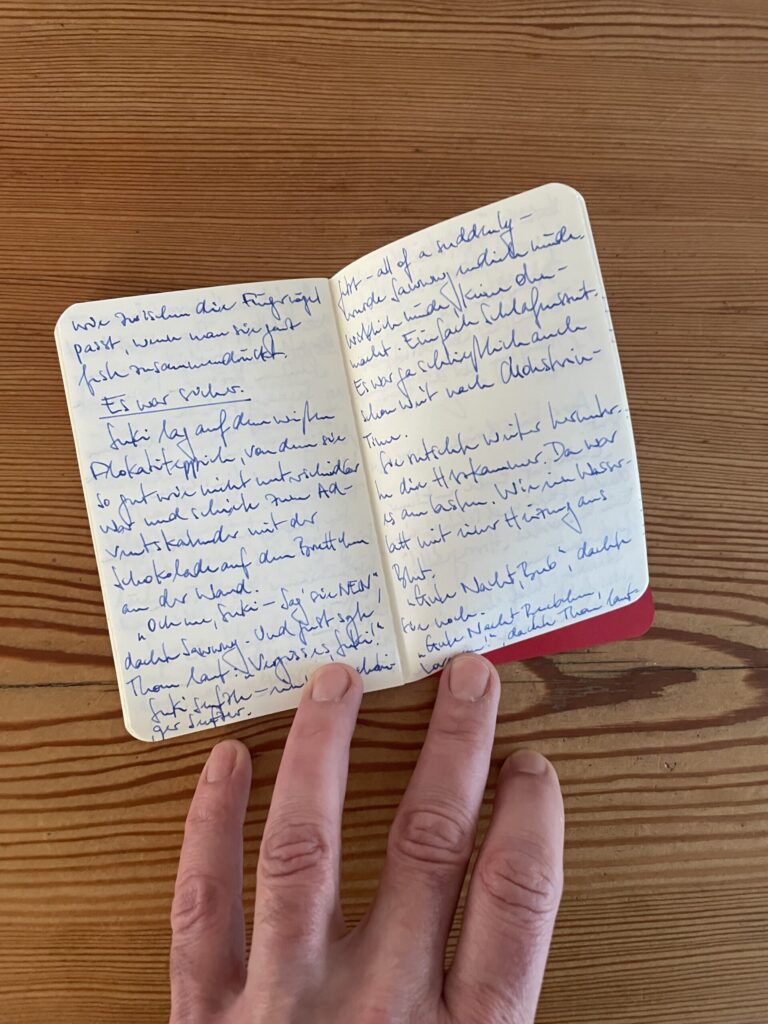 wie zwischen die Fingernägel
passt, wenn man sie ganz
fest zusammendrückt.
Es war sicher.
Suki lag auf dem weißen
Flokatiteppich, von dem sie
so gut wie nicht unterscheidbar
war und schielte zum Ad-
ventskalender mit der
Schokolade auf dem Brettchen
an der Wand.
"Och ne, Suki – Sag' sie NEIN"
dachte Sammy. Und just sagte
Thom laut: "Vergiss es, Suki!"
Suki seufzte – 
ger Seufzer.
Jetzt – all of a suddenly –
wurde Sammy endlich müde.
wirklich müde. Keine Ohn-
macht. Einfach Schlafenszeit.
Es war ja schließlich auch
schon weit nach
Time.
Sie rutschte weiter herunter.
In die Herzkammer. Da war
es am besten. Wie im Wasser-
bett mit einer Heizung aus
Blut.
"Gute Nacht, Bub", dachte
sie noch.
"Gute Nacht Bienchen,
dachte Thom laut.